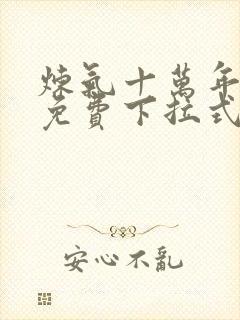 煉氣十萬年
免費下拉式
安心不亂